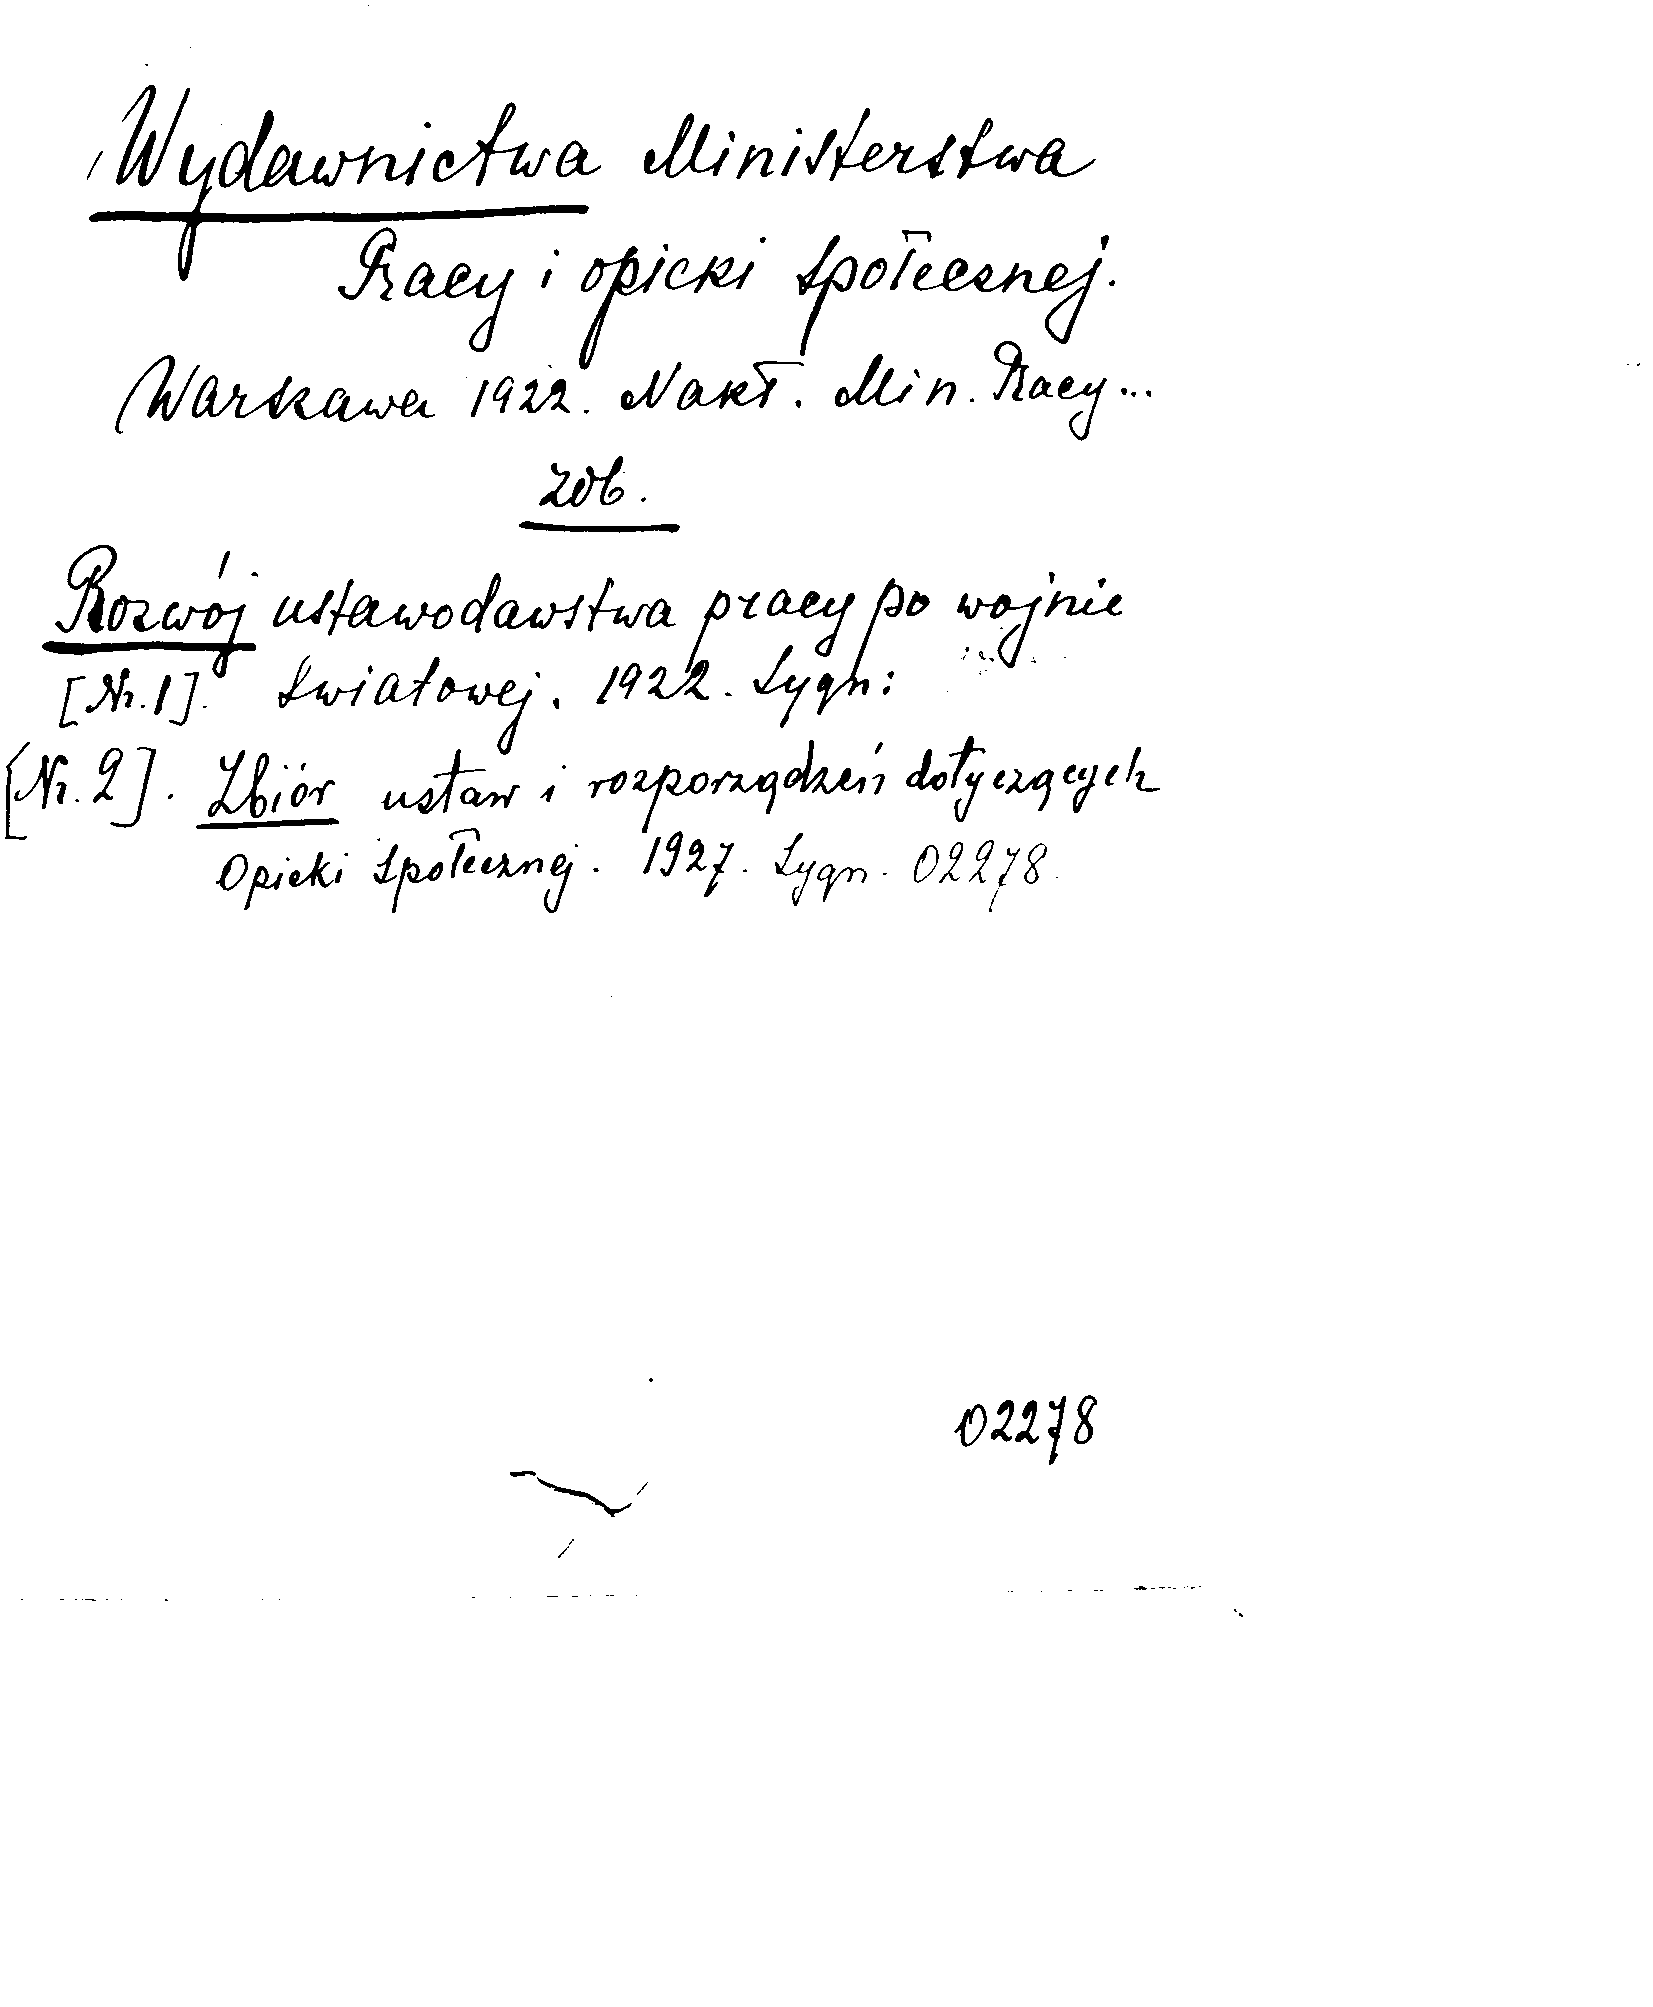 Wydawnictwa Ministerstwa
Pracy i opieki społecznej.
Warszawa 1922. Nakł. Min. Pracy...
zob.
Rozwój ustawodawstwa pracy po wojnie
[Nr. 1]. światowej. 1922. Sygn:
[Nr. 2]. Zbiór ustaw i rozporządzeń dotyczących
Opieki Społecznej. 1927. Sygn. 02278.
02278